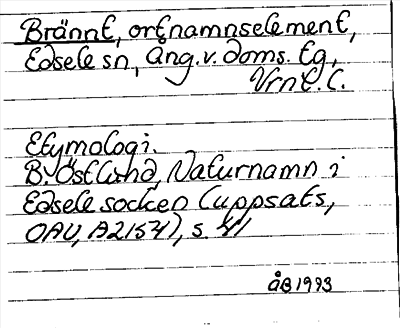 Brännt, ortnamnselement,
Edsele sn, Ång. v. doms. tg,
Vrnl. L.
Etymologi.
B. Östlund, Naturnamn i
Edsele socken (uppsats,
OAU, A2154), s. 41
ÅB 1993